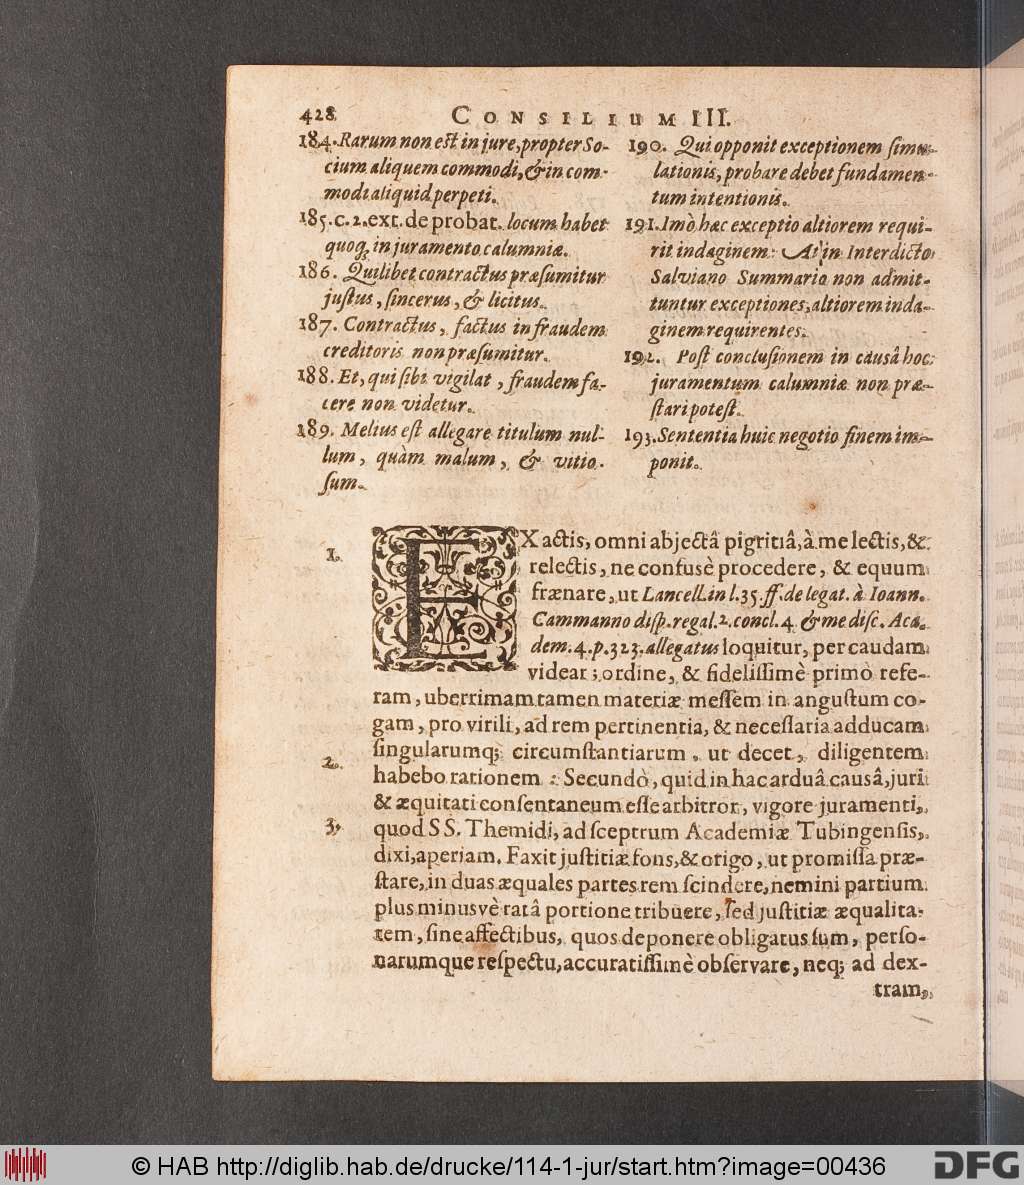 428 CONSILIUM III.
184. Rarum non est in jure, propter So-
cium aliquem commodi, & incom-
modi aliquid perpeti.
185. c. 2. ext. de probat. locum habet
quoq; in juramento calumniæ.
186. Quilibet contractus præsumitur
justus, sincerus, & licitus.
187. Contractus, factus in fraudem
creditoris non præsumitur.
188. Et, qui sibi vigilat, fraudem fa-
cere non videtur.
189. Melius est allegare titulum nul-
lum, quàm malum, & vitio-
sum.
190. Qui opponit exceptionem simu-
lationis, probare debet fundamen-
tum intentionis.
191. Imò hæc exceptio altiorem requi-
rit indaginem: At in Interdicto
Salviano Summario non admit-
tuntur exceptiones, altiorem inda-
ginem requirentes.
192. Post conclusionem in causâ hoc
juramentum calumniæ non præ-
stari potest.
193. Sententia huic negotio finem im-
ponit.
1. EX actis, omni abjectâ pigritiâ, à me lectis, &
relectis, ne confusè procedere, & equum
frænare, ut Lancell. in l. 35. ff. de legat. à Ioann.
Cammanno disp. regal. 2. concl. 4 & me disc. Aca-
dem. 4. p. 323. allegatus loquitur, per caudam
videar; ordine, & fidelissimè primò refe-
ram, uberrimam tamen materiæ messem in angustum co-
gam, pro virili, ad rem pertinentia, & necessaria adducam
singularumq; circumstantiarum, ut decet, diligentem
2. habebo rationem: Secundò, quid in hac arduâ causâ, juri
& æquitati consentaneum esse arbitror, vigore juramenti,
3. quod SS. Themidi, ad sceptrum Academiæ Tubingensis,
dixi, aperiam. Faxit justitiæ fons, & origo, ut promissa præ-
stare, in duas æquales partes rem scindere, nemini partium
plus minusvè ratâ portione tribuere, sed justitiæ æqualita-
tem, sine affectibus, quos deponere obligatus sum, perso-
narumque respectu, accuratissimè observare, neq; ad dex-
tram,
© HAB http://diglib.hab.de/drucke/114-1-jur/start.htm?image=00436
DFG